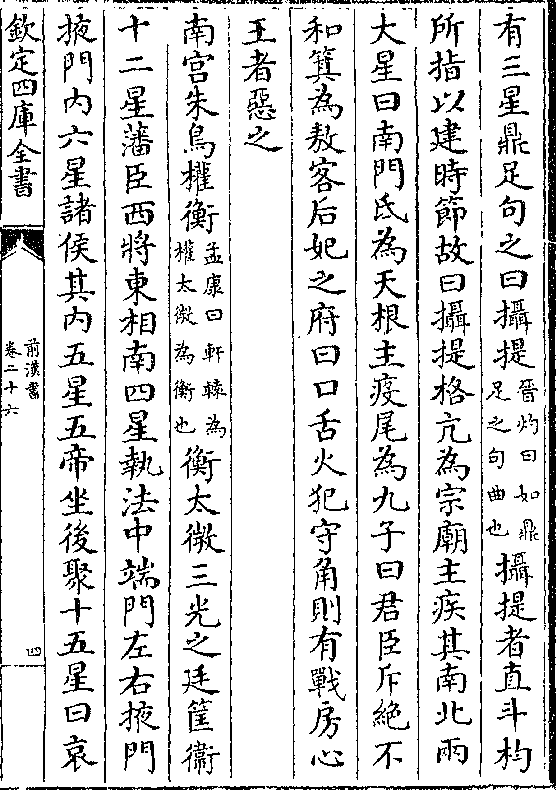 有三星鼎足句之曰攝提晉灼曰如鼎足之句曲也攝提者直斗杓
所指以建時節故曰攝提格亢為宗廟主疾其南北兩
大星曰南門氐為天根主疫尾為九子曰君臣斥絶不
和箕為敖客后妃之府曰口舌火犯守角則有戰房心
王者惡之
南宮朱鳥權衡孟康曰軒轅為權太微為衡也衡太微三光之廷筐衞
十二星藩臣西將東相南四星執法中端門左右掖門
掖門内六星諸侯其内五星五帝坐後聚十五星曰哀
欽定四庫全書
前漢書
卷二十六
四